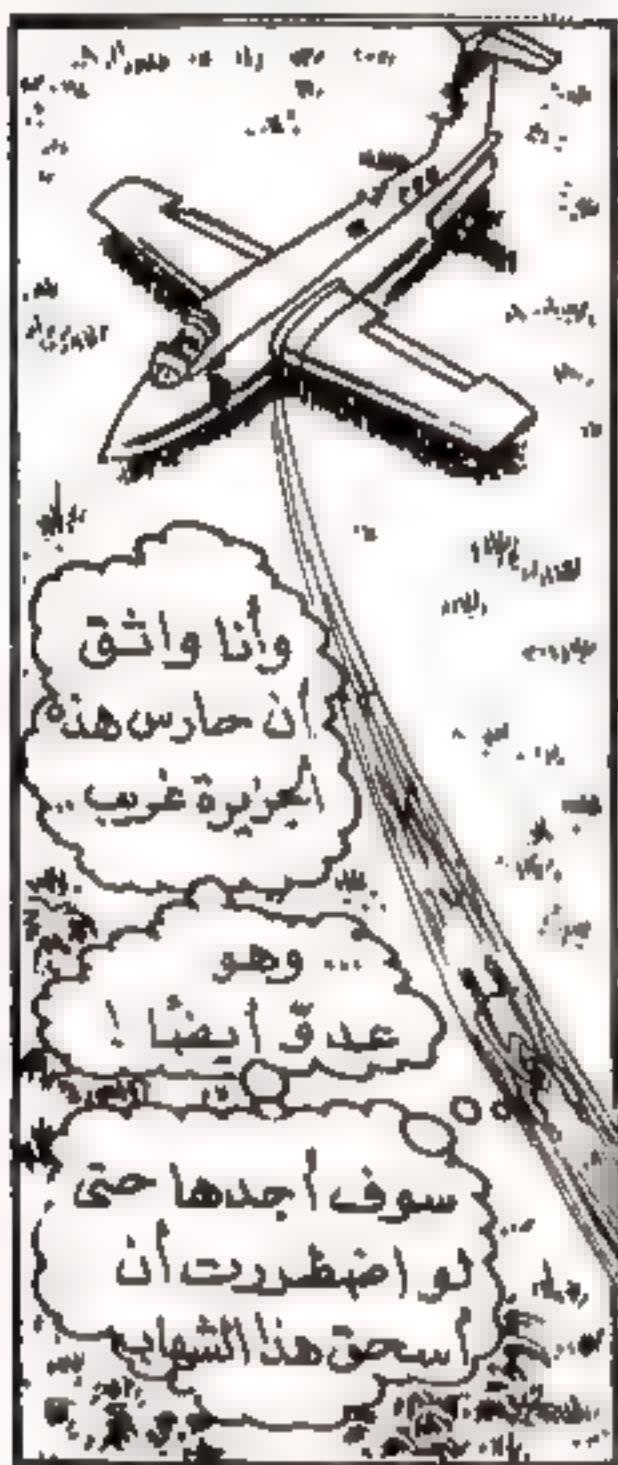 وأنا واثق
أن حارس هذه
الجزيرة غريب ..
... وهو
عدوّ أيضًا !
سوف أجدها حتى
لو اضطررت أن
أسحق هذا الشهاب